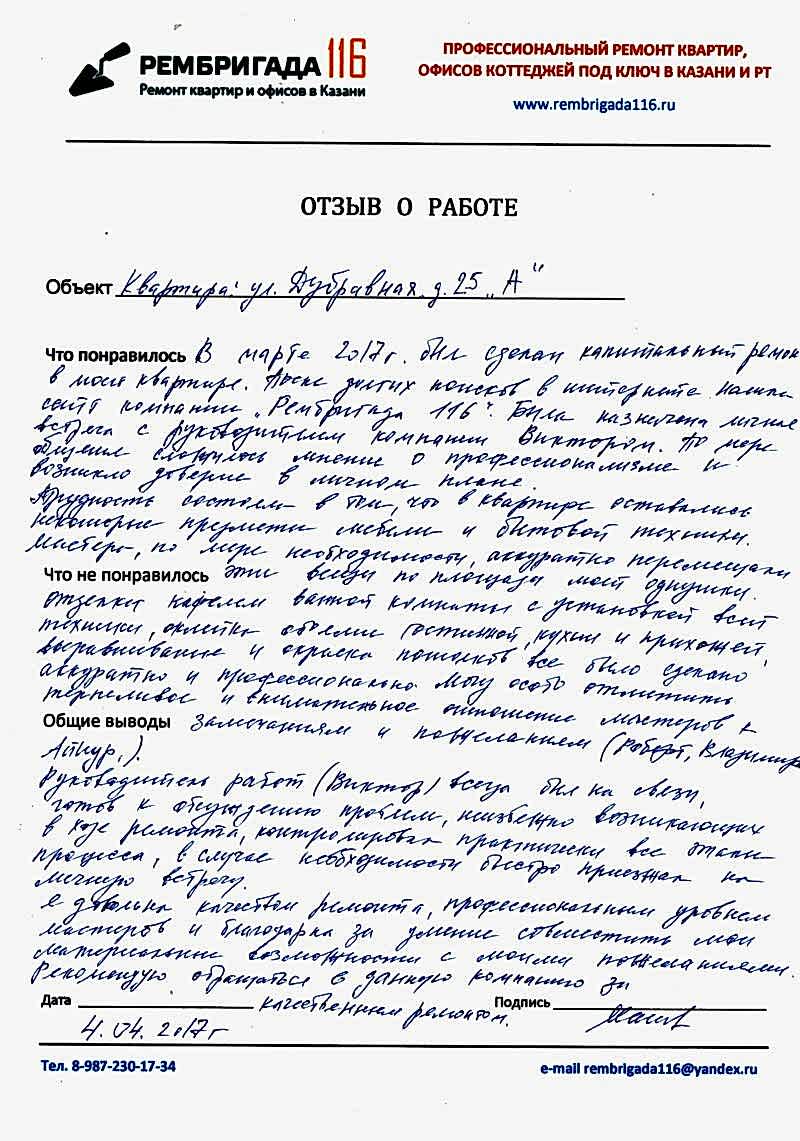 РЕМБРИГАДА 116
Ремонт квартир и офисов в Казани
ПРОФЕССИОНАЛЬНЫЙ РЕМОНТ КВАРТИР,
ОФИСОВ КОТТЕДЖЕЙ ПОД КЛЮЧ В КАЗАНИ И РТ
www.rembrigada116.ru
ОТЗЫВ О РАБОТЕ
Объект Квартира: ул. Дубравная д. 25 „А"
Что понравилось В марте 2017г. был сделан капитальный ремон
в моей квартире. После долгих поисков в интернете нашла
сайт компании „Рембригада 116". Была назначена личная
встреча с руководителем компании Виктором. По мере
общения сложилось мнение о профессионализме и
возникло доверие в личном плане.
Трудность состояла в том, что в квартире оставались
некоторые предметы мебели и бытовой техники.
Мастера, по мере необходимости, аккуратно перемещали
Что не понравилось эти вещи по площади моей однушки.
Отделка кафелем ванной комнаты с установкой всей
техники, оклейка обоями гостинной, кухни и прихожей,
выравнивание и окраска потолков все было сделано
аккуратно и профессионально. Могу особо отметить
терпеливое и внимательное отношение мастеров к
Общие выводы замечаниям и пожеланиям (Роберт, Владимир,
Айнур,).
Руководитель работ (Виктор) всегда был на связи,
готов к обсуждению проблем, неизбежно возникающих
в ходе ремонта, контролировал практически все этапы
процесса, в случае необходимости быстро приезжал на
личную встречу.
Я довольна качеством ремонта, профессиональным уровнем
мастеров и благодарна за умение совместить мои
материальные возможности с моими пожеланиями.
Рекомендую обращаться в данную компанию за
Дата качественным ремонтом. Подпись
4.04.2017г
Тел. 8-987-230-17-34
e-mail rembrigada116@yandex.ru